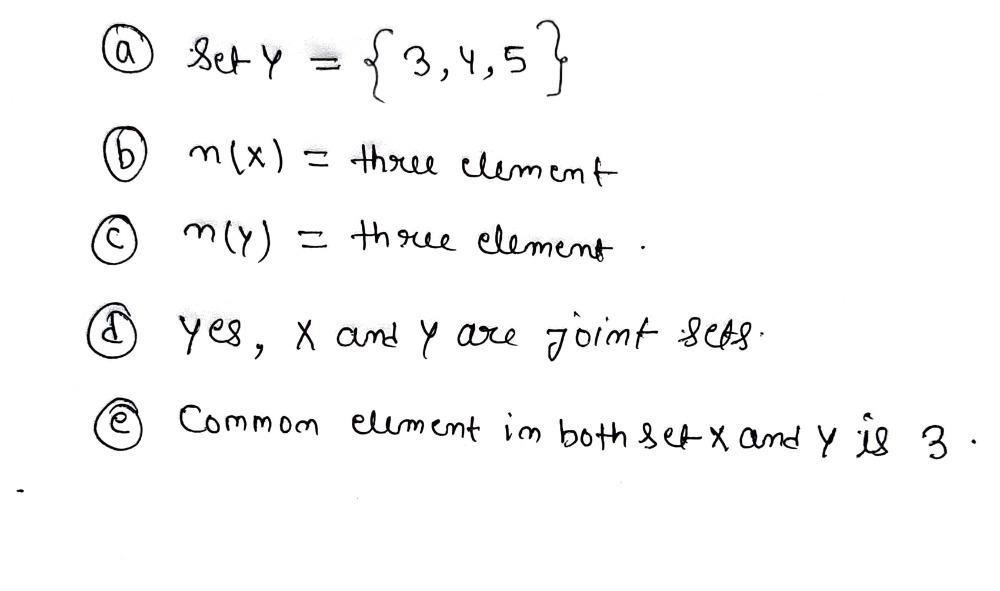 ⓐ Set Y = {3, 4, 5}
ⓑ n(X) = three element
ⓒ n(Y) = three element.
ⓓ Yes, X and Y are joint sets.
ⓔ Common element in both set X and Y is 3.